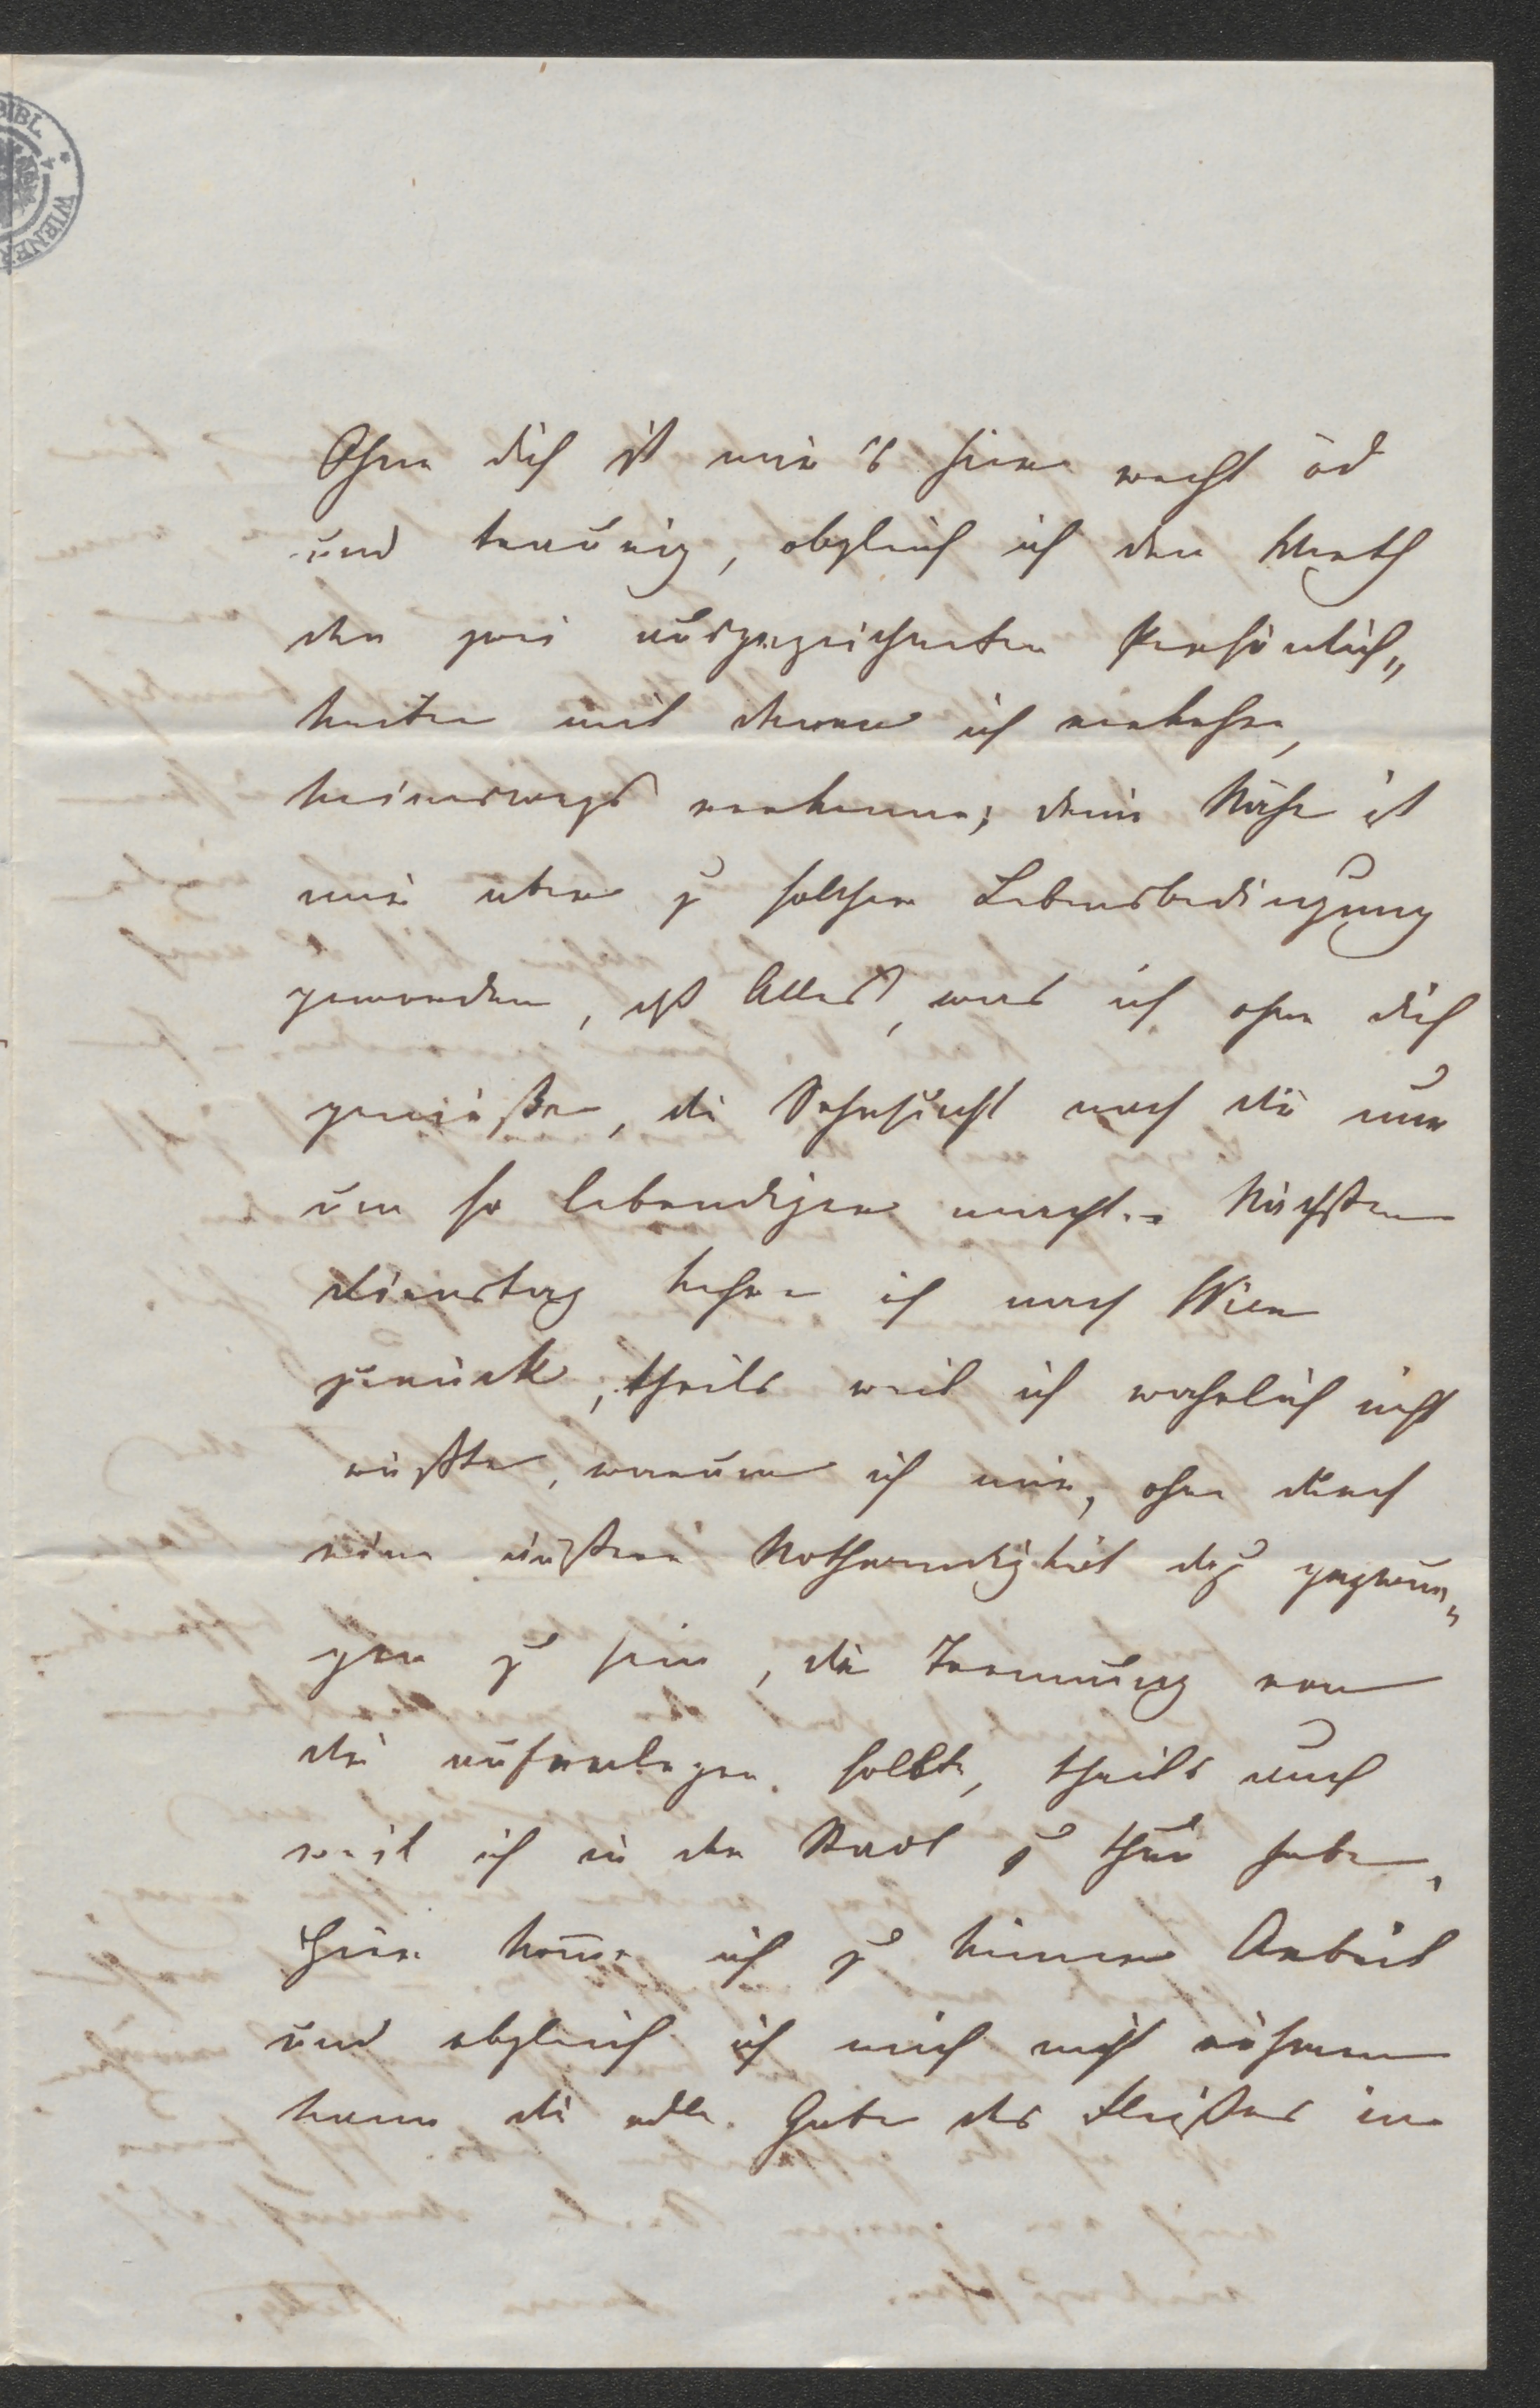 BIBL. * WIENER
Ohne dich ist mir's hier recht öd
und traurig, obgleich ich den Werth
der zwei ausgezeichneten Persönlich„
keiten mit denen ich verkehre,
keineswegs verkenne; deine Nähe ist
mir aber zu solcher Lebensbedingung
geworden, daß Alles, was ich ohne dich
genieße, die Sehnsucht nach dir nur
um so lebendiger macht. – Nächsten
Dienstag kehre ich nach Wien
zurück, theils weil ich wahrlich nicht
wüßte, warum ich mir, ohne durch
eine äußere Nothwendigkeit dazu gezwun„
gen zu sein, die Trennung von
dir auferlegen sollte, theils auch
weil ich in der Stadt zu thun habe.
Hier kom̄e ich zu keiner Arbeit
und obgleich ich mich nicht rühmen
kann die edle Gabe des Fleißes in